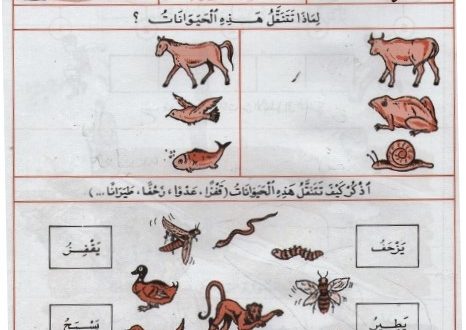 لِمَاذَا تَتَنَقَّلُ هَذِهِ الْحَيَوَانَاتُ ؟
اُذْكُرْ كَيْفَ تَتَنَقَّلُ هَذِهِ الْحَيَوَانَاتُ (قَفْزًا، عَدْوًا، زَحْفًا، طَيَرَانًا ...)
يَزْحَفُ
يَقْفِزُ
يَطِيرُ
يَسْبَحُ